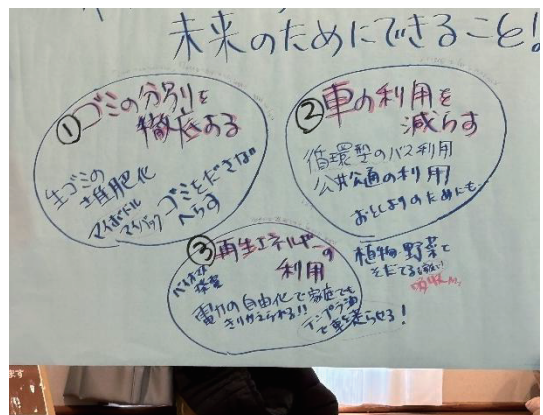 未来のためにできること!
①ゴミの分別を
徹底する
生ゴミの
堆肥化
マイボトル
マイバック
ゴミをださない
へらす
②車の利用を
減らす
循環型のバス利用
公共交通の利用
おとしよりのためにも
③再生エネルギーの
利用
電力の自由化で家庭でも
きりかえられる!!
テンプラ油
で車を走らせる!
植物・野菜を
そだてる
ます